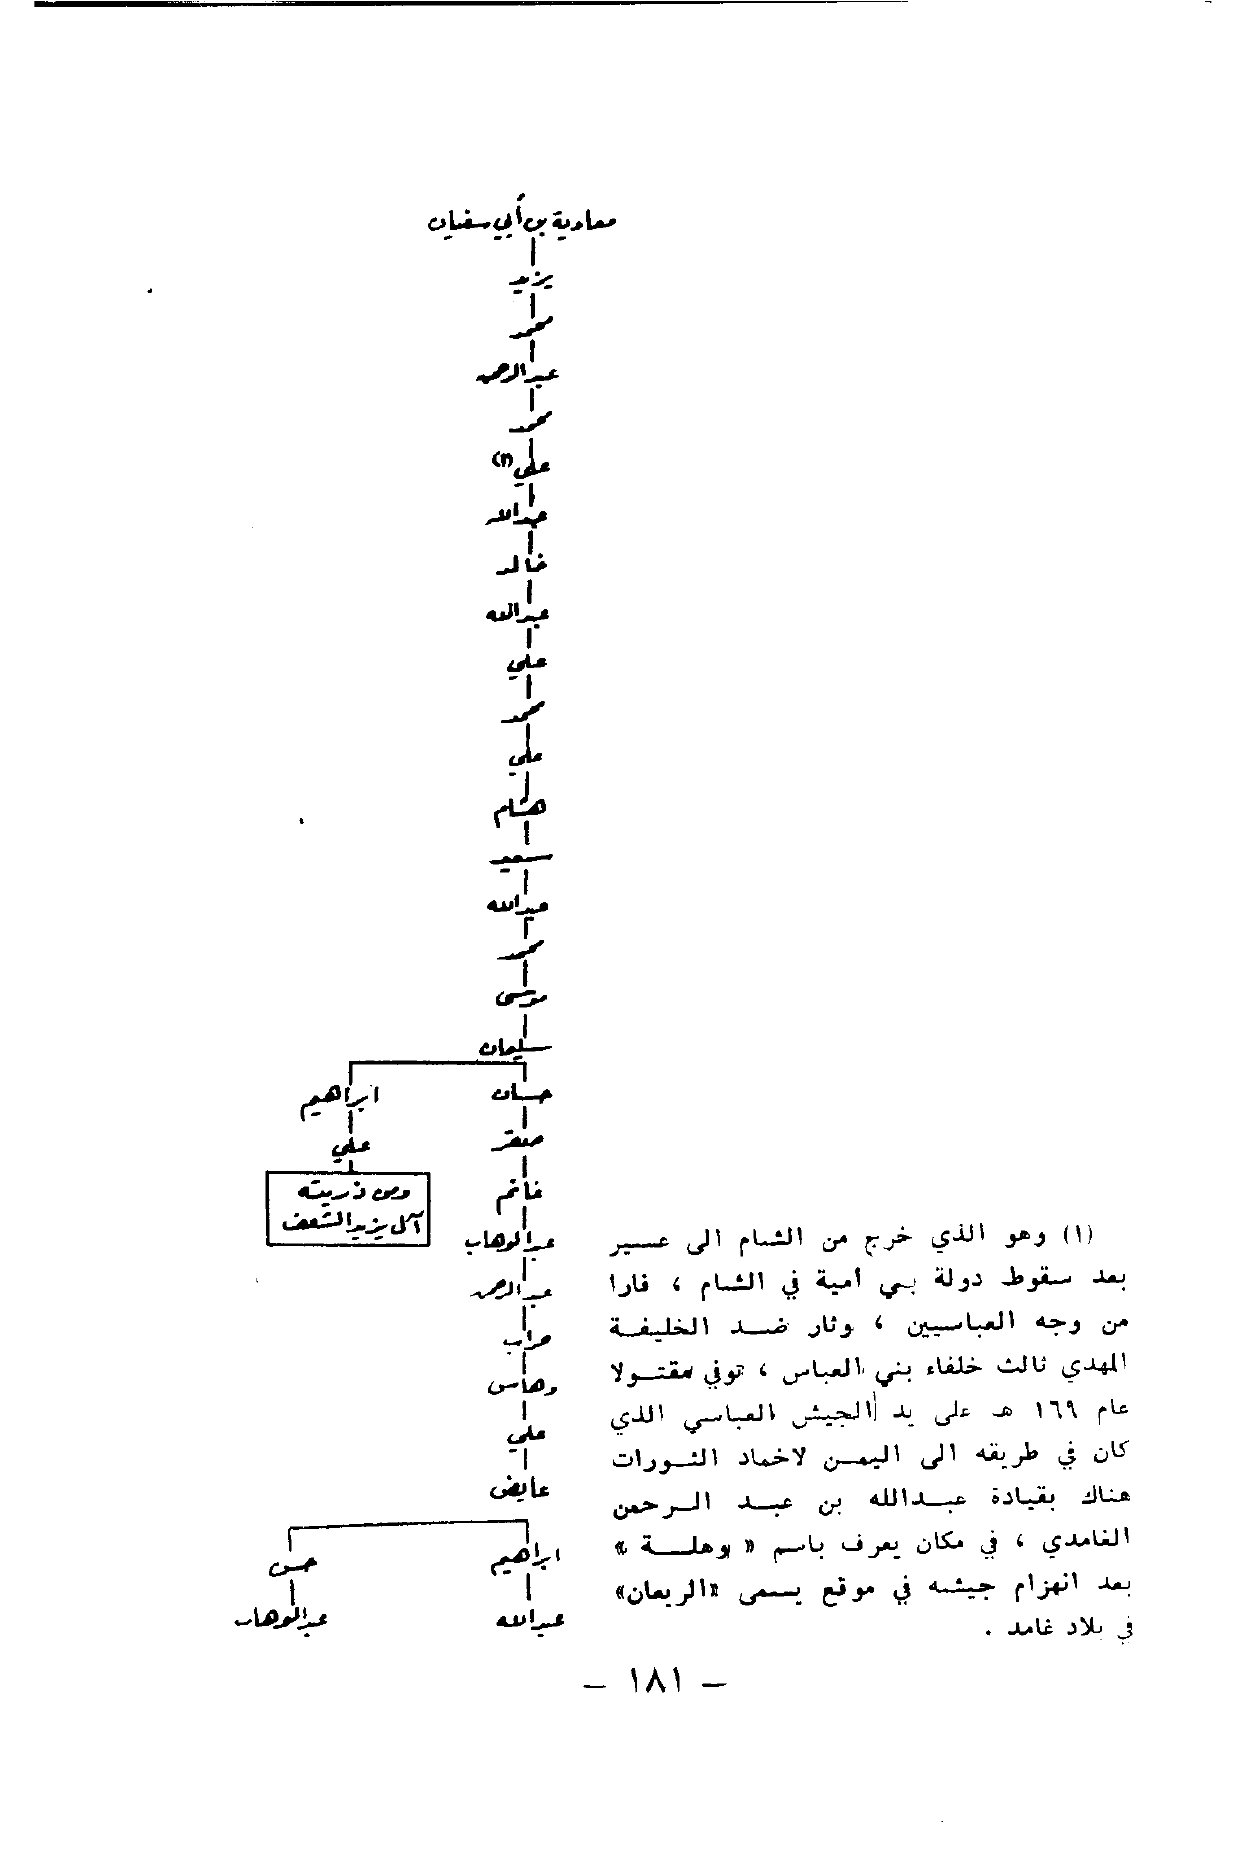 معاوية بن أبي سفيان
يزيد
محمد
عبدالرحمن
محمد
علي (١)
عبدالله
خالد
عبدالله
علي
محمد
علي
هشام
سعيد
عبدالله
محمد
موسى
سليمان
حسان
ابراهيم
صقر
علي
غانم
ومن ذريته
آل يزيد الشعف
عبدالوهاب
عبدالرحمن
حراب
وهاس
علي
عايض
ابراهيم
حسن
عبدالله
عبدالوهاب
(١) وهو الذي خرج من الشام الى عسير
بعد سقوط دولة بني أمية في الشام ، فارا
من وجه العباسيين ، وثار ضد الخليفة
المهدي ثالث خلفاء بني العباس ، توفي مقتولا
عام ١٦٩ هـ على يد الجيش العباسي الذي
كان في طريقه الى اليمن لاخماد الثورات
هناك بقيادة عبدالله بن عبد الرحمن
الغامدي ، في مكان يعرف باسم « بوهلة »
بعد انهزام جيشه في موقع يسمى «الربعان»
في بلاد غامد .
– ١٨١ –